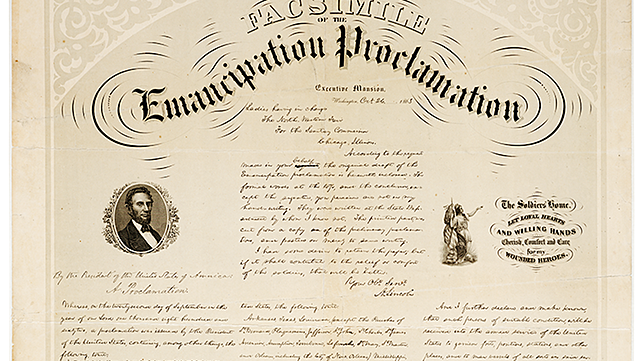 FACSIMILE
OF THE
Emancipation Proclamation
Executive Mansion,
Washington, Oct 26, 1863
Ladies having in charge
The North Western Fair
For the Sanitary Commission
Chicago, Illinois.
According to the request
made in your behalf, the original draft of the
Emancipation proclamation is herewith enclosed. The
formal words at the top, and the conclusion, ex-
cept the signature, you perceive, are not in my
hand-writing. They were written at the State Dep-
artment by whom I know not. The printed part was
cut from a copy of the preliminary proclama-
tion, and pasted on merely to save writing.
I had some desire to retain the paper; but
if it shall contribute to the relief or comfort
of the soldiers, that will be better
Your Obt. Servt.
A. Lincoln
The Soldiers Home.
LET LOYAL HEARTS
AND WILLING HANDS
Cherish, Comfort and Care
for my
WOUNDED HEROES.
By the President of the United States of America:
A Proclamation.
Whereas, on the twenty-second day of September, in the
year of our Lord one thousand eight hundred and
sixty two, a proclamation was issued by the President
of the United States, containing, among other things, the
following, to wit:
ten States, the following, to wit:
Arkansas, Texas, Louisiana, except the Parishes of
St. Bernard, Plaquemines, Jefferson, St. John, St. Charles, St. James,
Ascension, Assumption, Terrebonne, Lafourche, St. Mary, St. Martin,
and Orleans, including the City of New Orleans, Mississippi,
And I further declare and make known,
that such persons of suitable condition, will be
received into the armed service of the United
States to garrison forts, positions, stations, and other
places, and to man vessels of all sorts in said